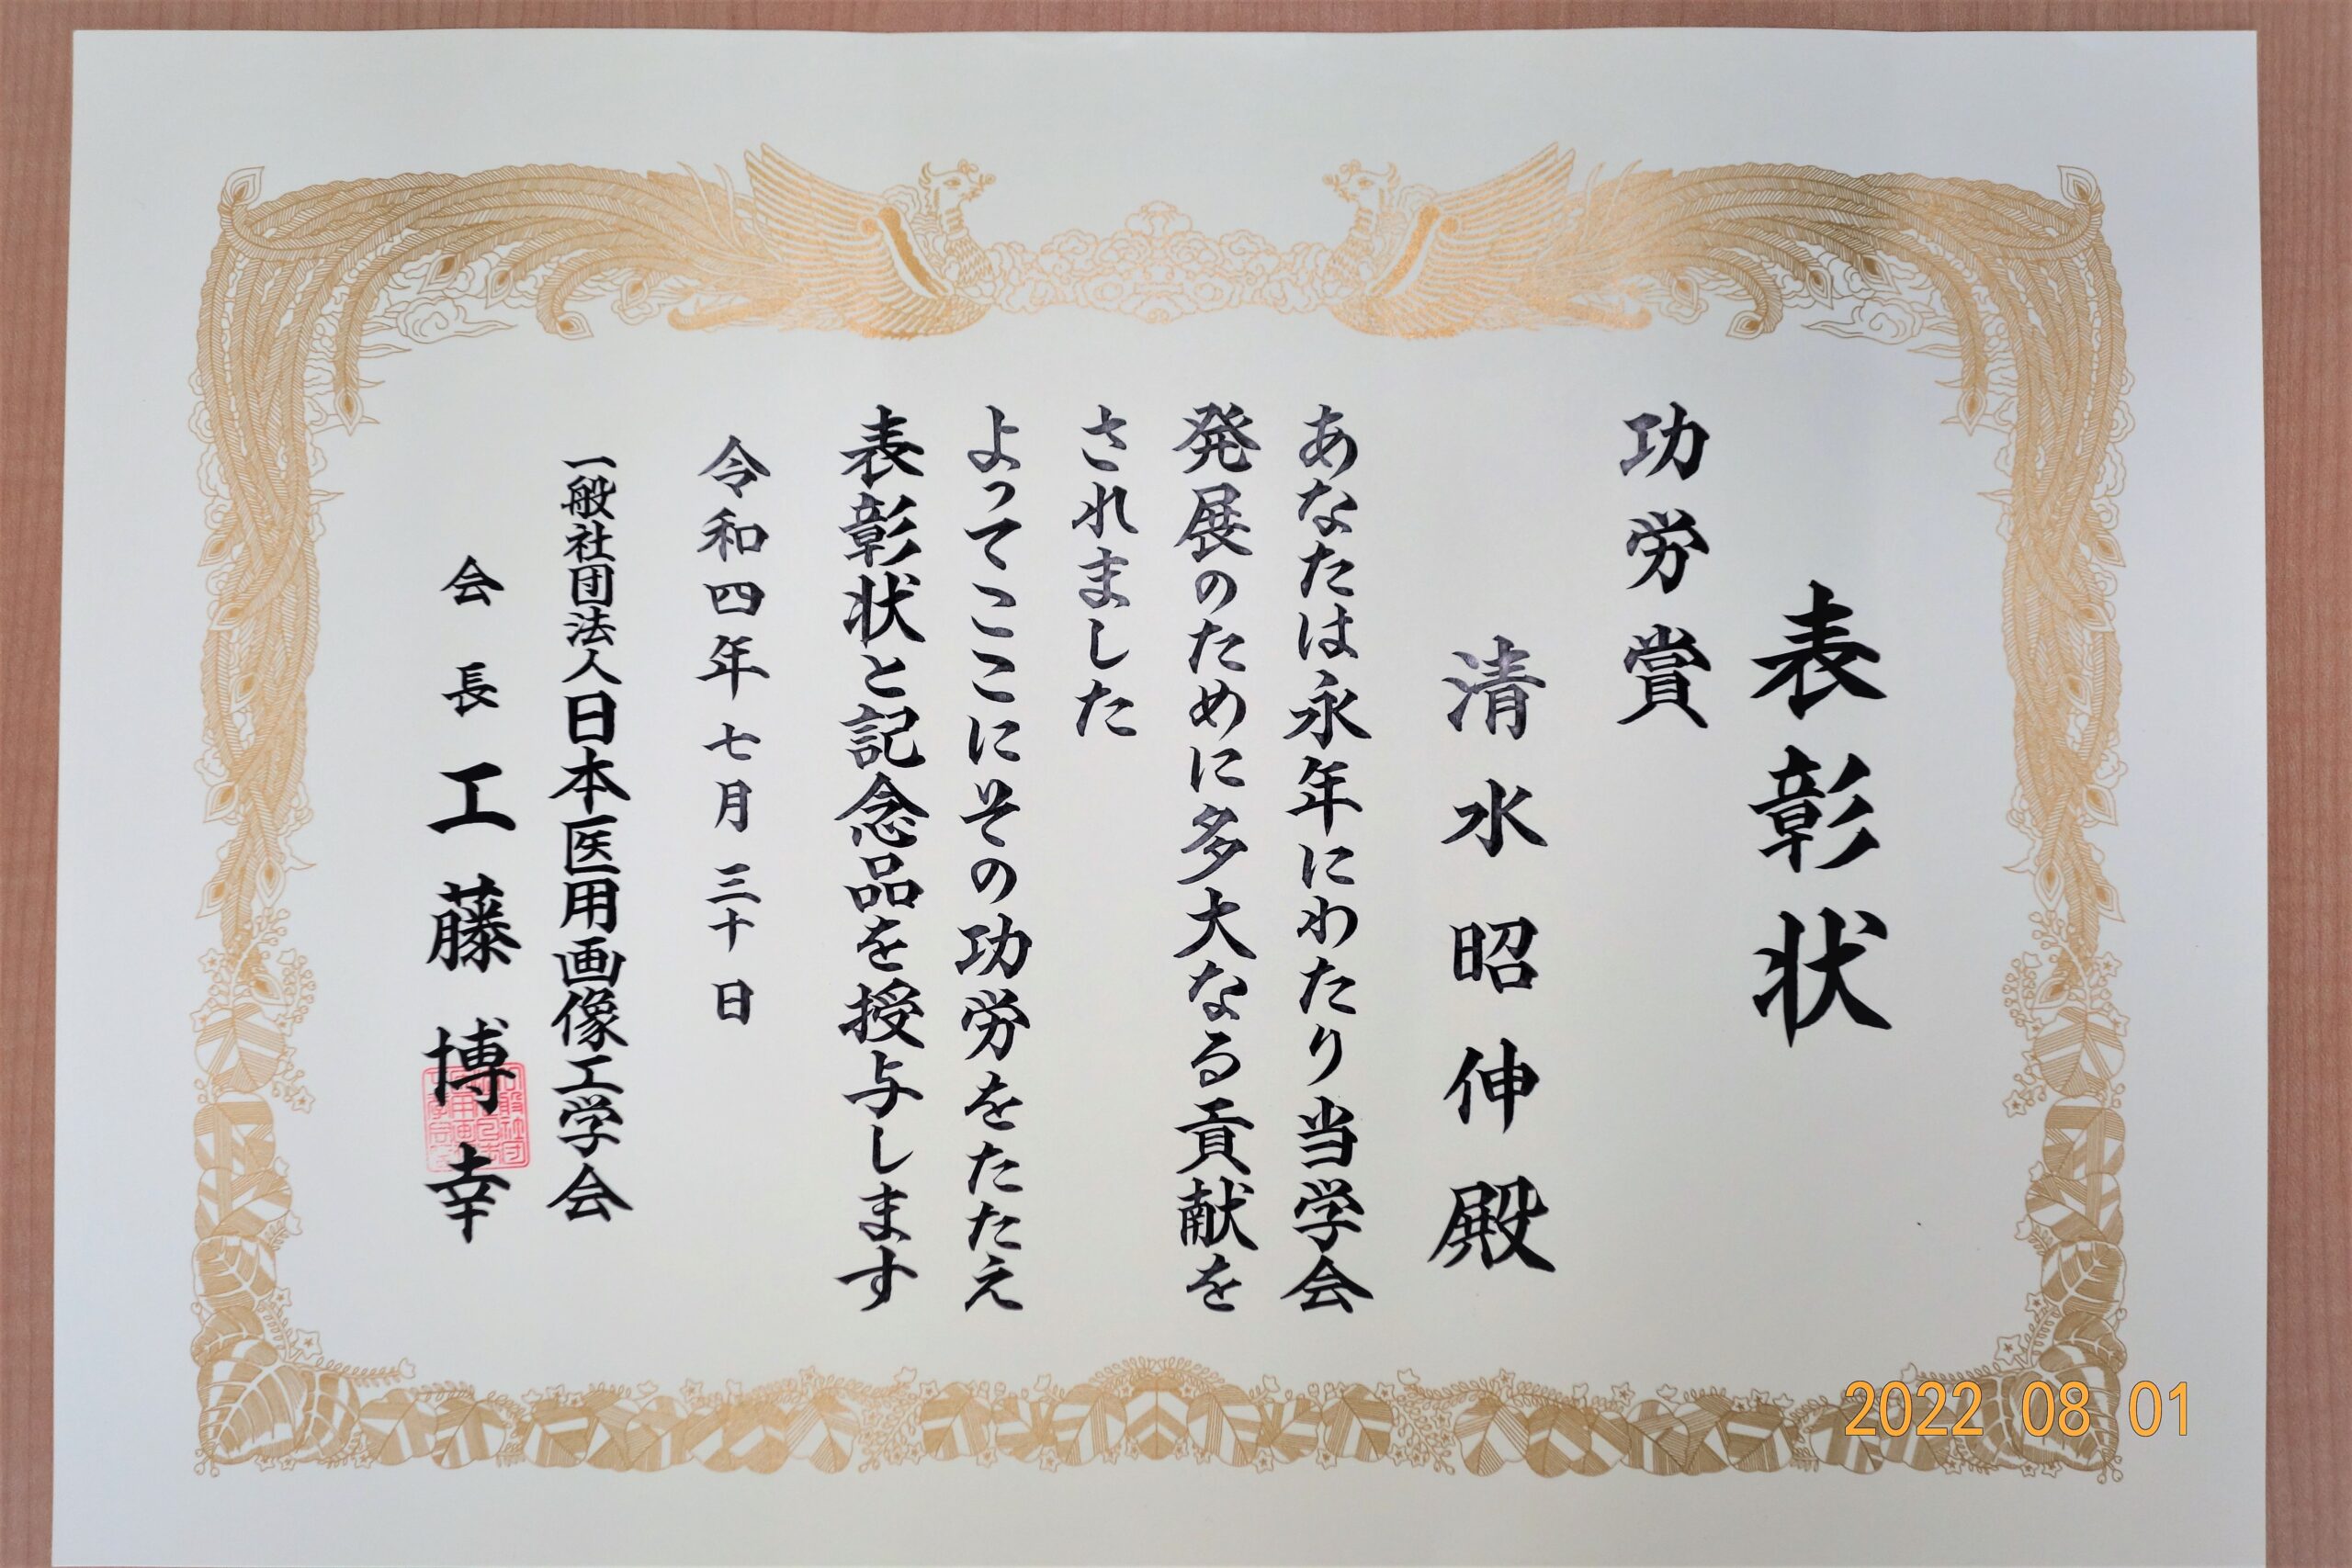 表彰状
功労賞
清水昭伸殿
あなたは永年にわたり当学会
発展のために多大なる貢献を
されました
よってここにその功労をたたえ
表彰状と記念品を授与します
令和四年七月三十日
一般社団法人日本医用画像工学会
会長 工藤博幸
2022 08 01